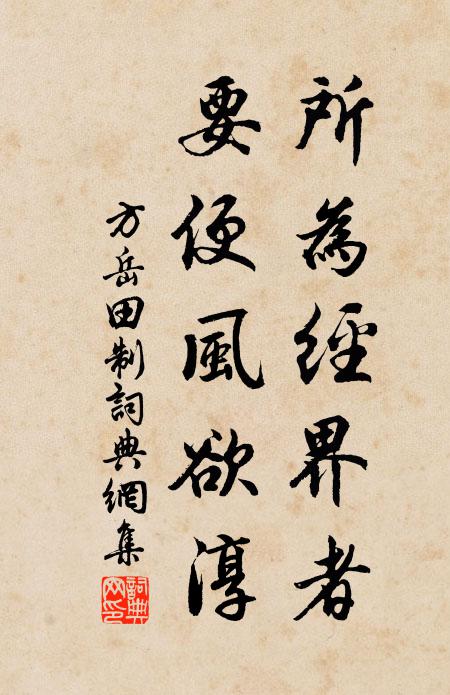 所為經界者
要使風欲淳
方岳田制詞典網集
詞典
网印